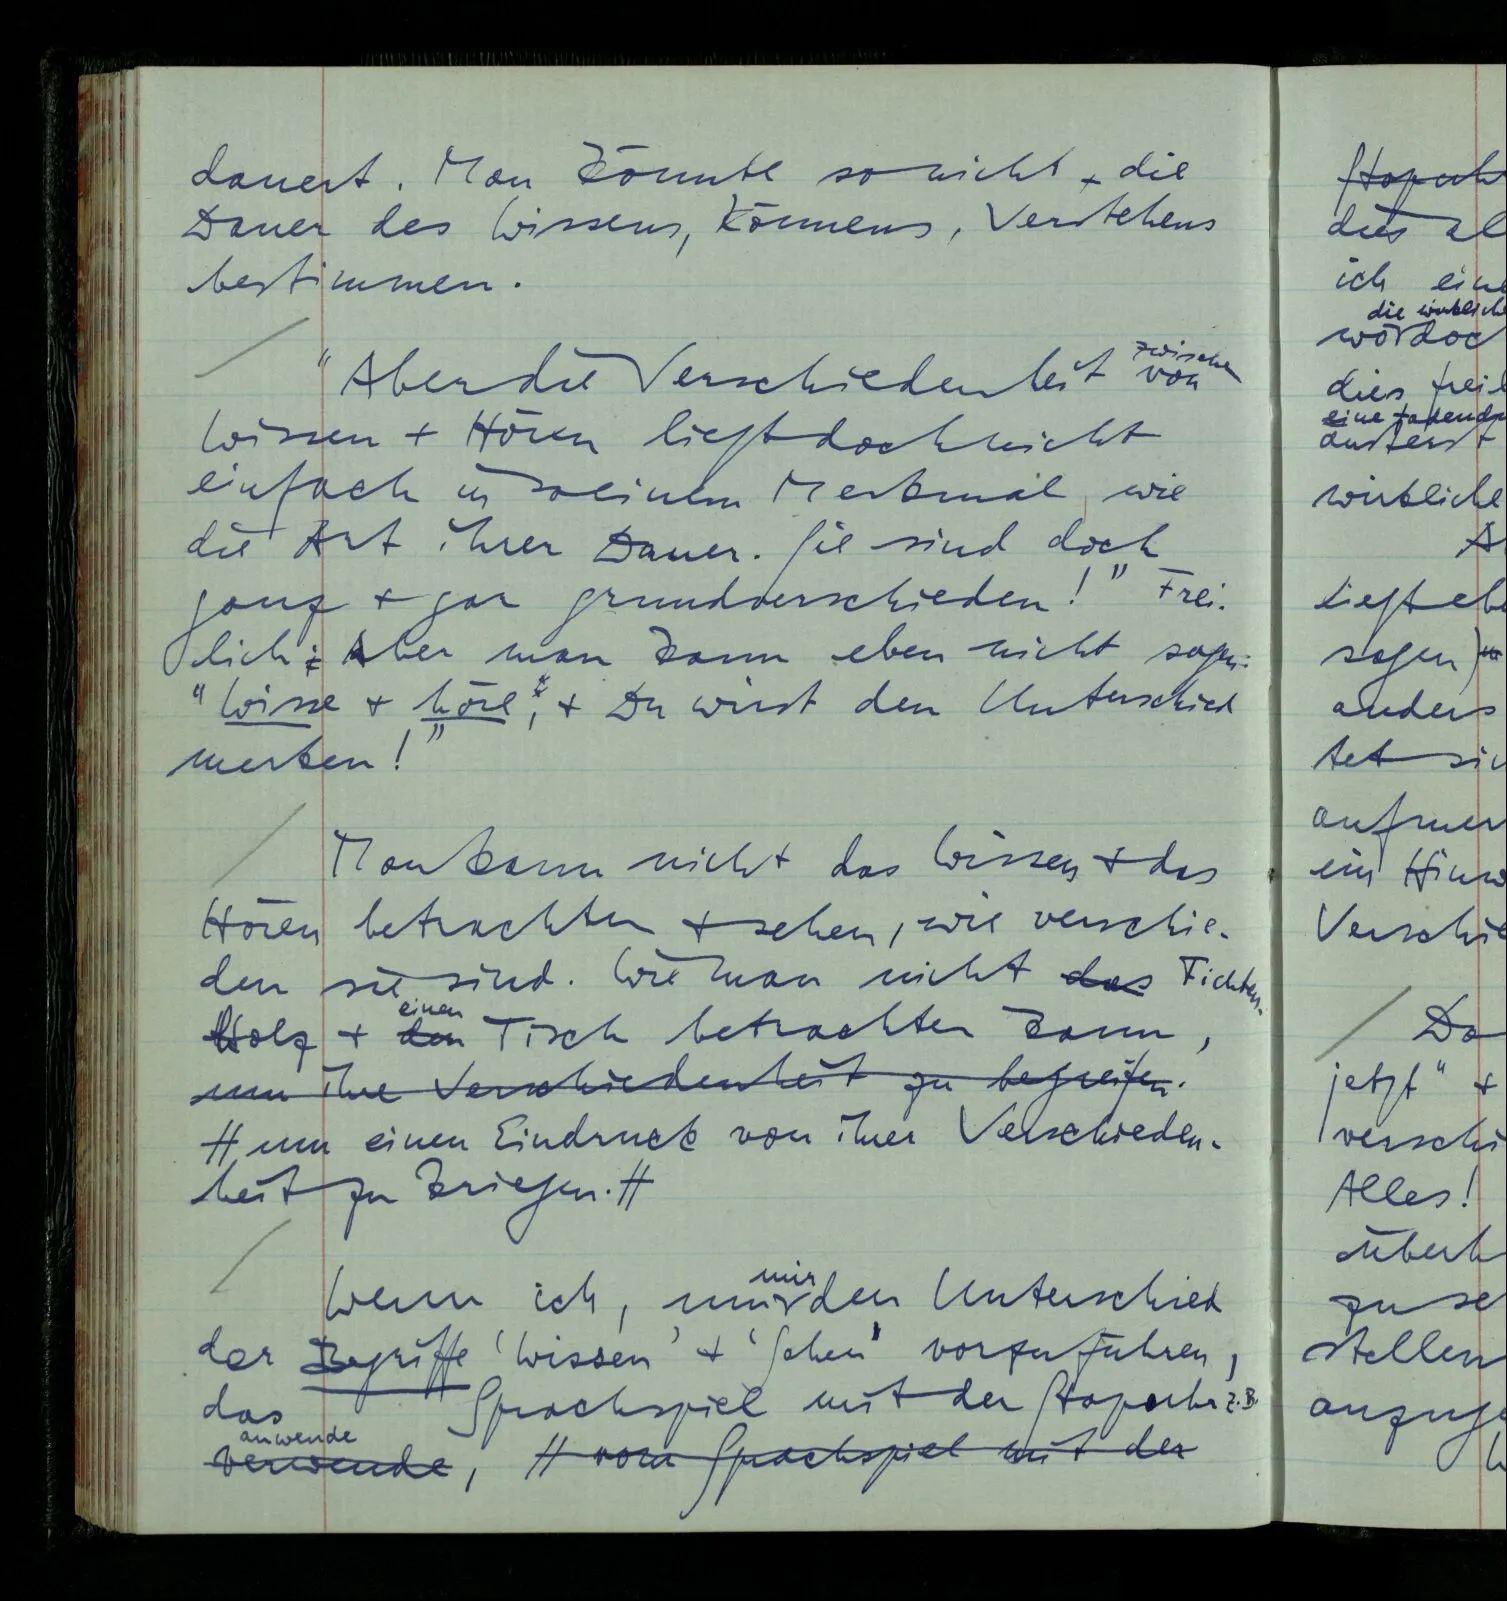 dauert. Man könnte so nicht die
Dauer des Wissens, Könnens, Verstehens
bestimmen.
/ "Aber die Verschiedenheit zwischen
von
Wissen + Hören liegt doch nicht
einfach in so einem Merkmal, wie
die Art ihrer Dauer. Sie sind doch
ganz + gar grundverschieden!" Frei-
lich: Aber man kann eben nicht sagen:
"Wisse + höre", + Du wirst den Unterschied
merken!"
/ Man kann nicht das Wissen + das
Hören betrachten + sehen, wie verschie-
den sie sind. Wie man nicht das Fichten-
einen
Holz + den Tisch betrachten kann,
um ihre Verschiedenheit zu begreifen.
// um einen Eindruck von ihrer Verschieden-
heit zu kriegen. //
/ mir
Wenn ich, um den Unterschied
der Begriffe 'Wissen' + 'Sehen' vorzuführen,
das Sprachspiel mit der Stopuhr z.B.
anwende
verwende, // vom Sprachspiel mit der
Stopuh
dies al
ich eine
die wirklich
wo doc
dies frei
eine
äusserst
wirkliche
A
liegt ebe
sagen)
anders
tet sic
aufmer
ein Hinw
Verschie
/ Da
jetzt" +
verschi
Alles!
überh
zu se
stellen
anzuge